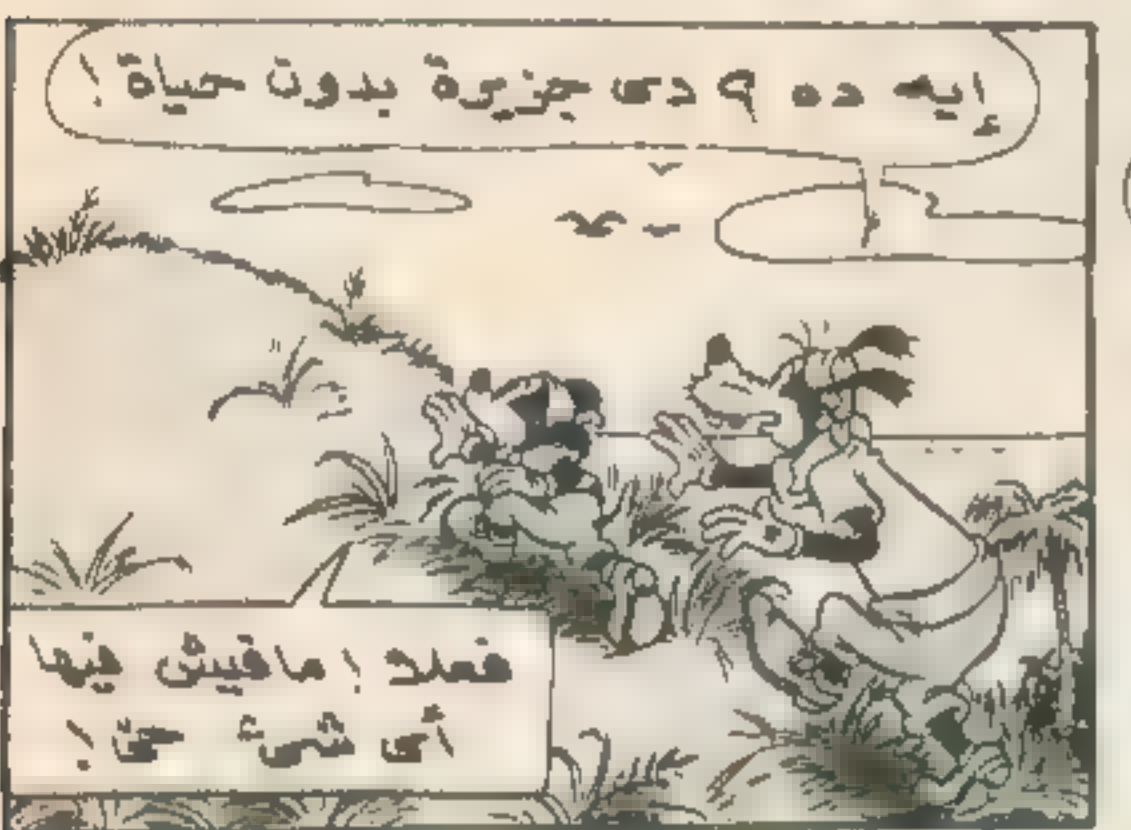 إيه ده ؟ دى جزيرة بدون حياة !
فعلا ! مافيش فيها
أى شىء حىّ !